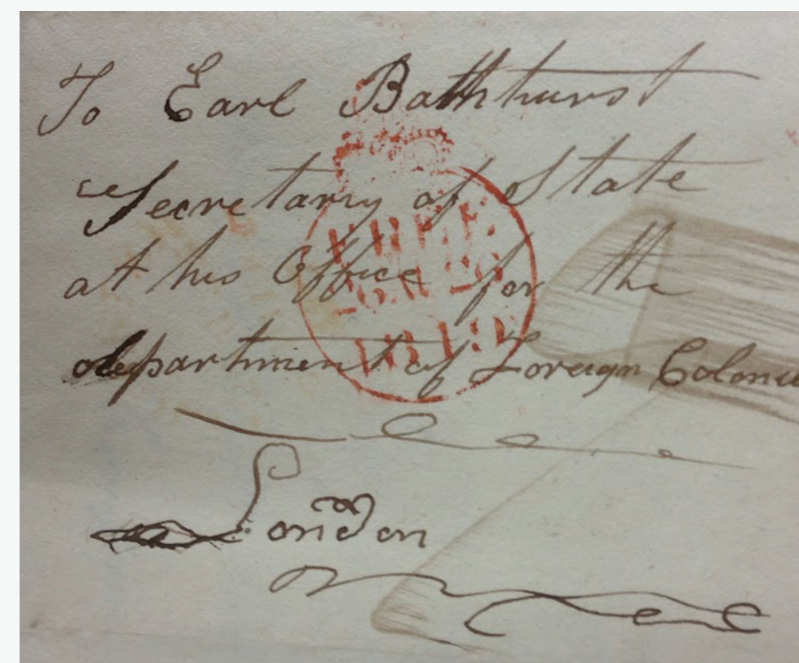 To Earl Bathhurst
Secretary of State
at his Office for the
department of Foreign
London
FREE